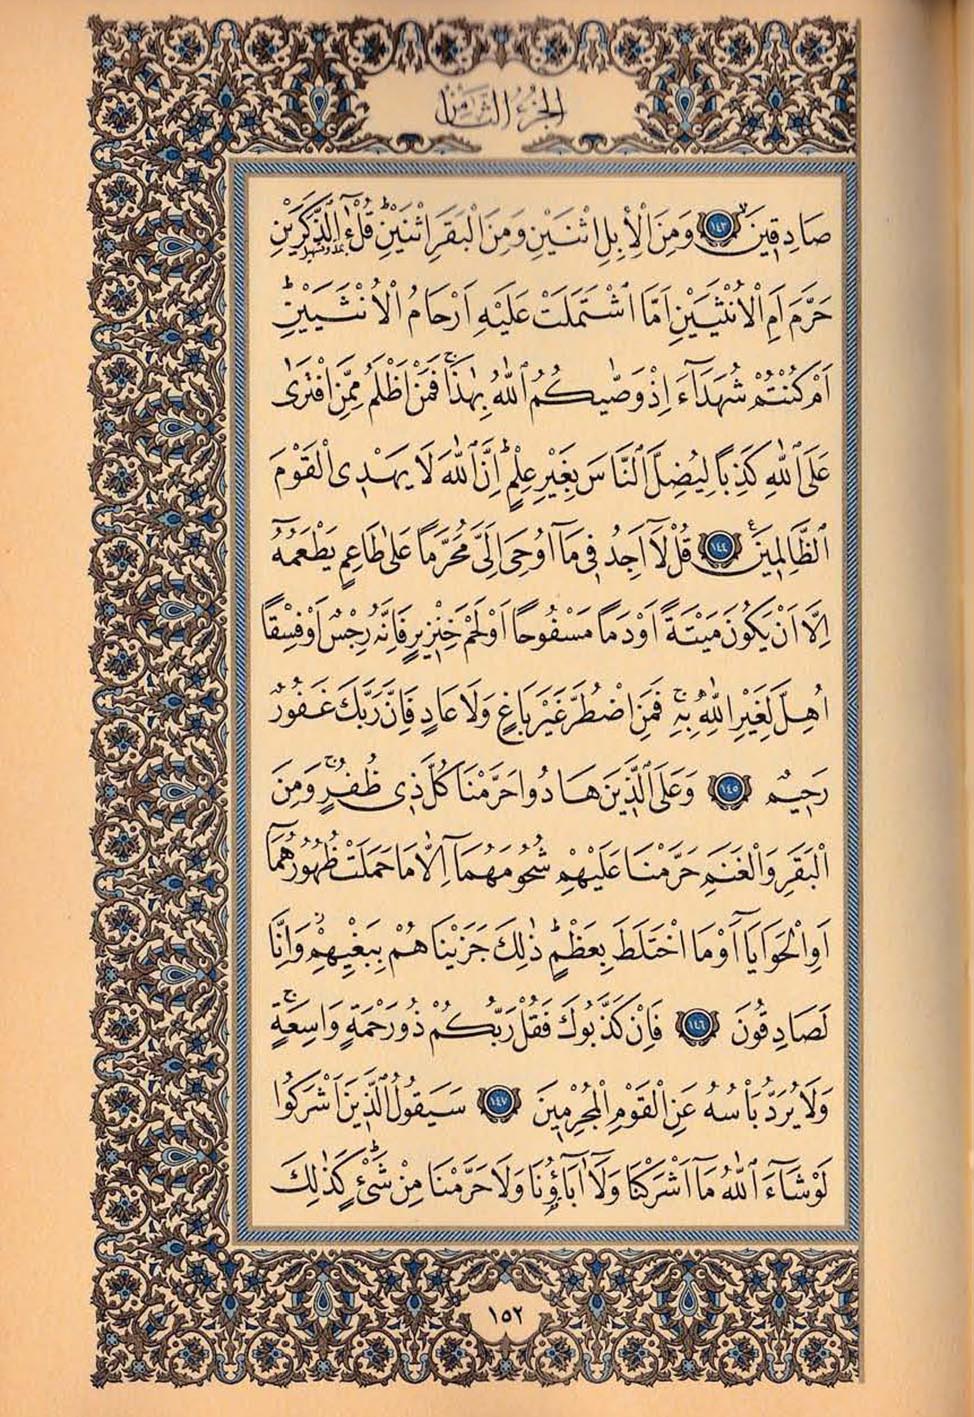 الجزء الثامن
صَادِقِينَ ﴿١٤٣﴾ وَمِنَ الْاِبِلِ اثْنَيْنِ وَمِنَ الْبَقَرِ اثْنَيْنِۜ قُلْ ءٰٓالذَّكَرَيْنِ
حَرَّمَ اَمِ الْاُنْثَيَيْنِ اَمَّا اشْتَمَلَتْ عَلَيْهِ اَرْحَامُ الْاُنْثَيَيْنِۜ
اَمْ كُنْتُمْ شُهَدَٓاءَ اِذْ وَصّٰيكُمُ اللّٰهُ بِهٰذَاۚ فَمَنْ اَظْلَمُ مِمَّنِ افْتَرٰى
عَلَى اللّٰهِ كَذِبًا لِيُضِلَّ النَّاسَ بِغَيْرِ عِلْمٍۜ اِنَّ اللّٰهَ لَا يَهْدِي الْقَوْمَ
الظَّالِمِينَ۟ ﴿١٤٤﴾ قُلْ لَٓا اَجِدُ فِي مَٓا اُوحِيَ اِلَيَّ مُحَرَّمًا عَلٰى طَاعِمٍ يَطْعَمُهُٓ
اِلَّٓا اَنْ يَكُونَ مَيْتَةً اَوْ دَمًا مَسْفُوحًا اَوْ لَحْمَ خِنْزِيرٍ فَاِنَّهُ رِجْسٌ اَوْ فِسْقًا
اُهِلَّ لِغَيْرِ اللّٰهِ بِهِۚ فَمَنِ اضْطُرَّ غَيْرَ بَاغٍ وَلَا عَادٍ فَاِنَّ رَبَّكَ غَفُورٌ
رَحِيمٌ ﴿١٤٥﴾ وَعَلَى الَّذِينَ هَادُوا حَرَّمْنَا كُلَّ ذِي ظُفُرٍۚ وَمِنَ
الْبَقَرِ وَالْغَنَمِ حَرَّمْنَا عَلَيْهِمْ شُحُومَهُمَٓا اِلَّا مَا حَمَلَتْ ظُهُورُهُمَٓا
اَوِ الْحَوَايَٓا اَوْ مَا اخْتَلَطَ بِعَظْمٍۜ ذٰلِكَ جَزَيْنَاهُمْ بِبَغْيِهِمْۘ وَاِنَّا
لَصَادِقُونَ ﴿١٤٦﴾ فَاِنْ كَذَّبُوكَ فَقُلْ رَبُّكُمْ ذُو رَحْمَةٍ وَاسِعَةٍۚ
وَلَا يُرَدُّ بَأْسُهُ عَنِ الْقَوْمِ الْمُجْرِمِينَ ﴿١٤٧﴾ سَيَقُولُ الَّذِينَ اَشْرَكُوا
لَوْ شَٓاءَ اللّٰهُ مَٓا اَشْرَكْنَا وَلَٓا اٰبَٓاؤُ۬نَا وَلَا حَرَّمْنَا مِنْ شَيْءٍۜ كَذٰلِكَ
١٥٢